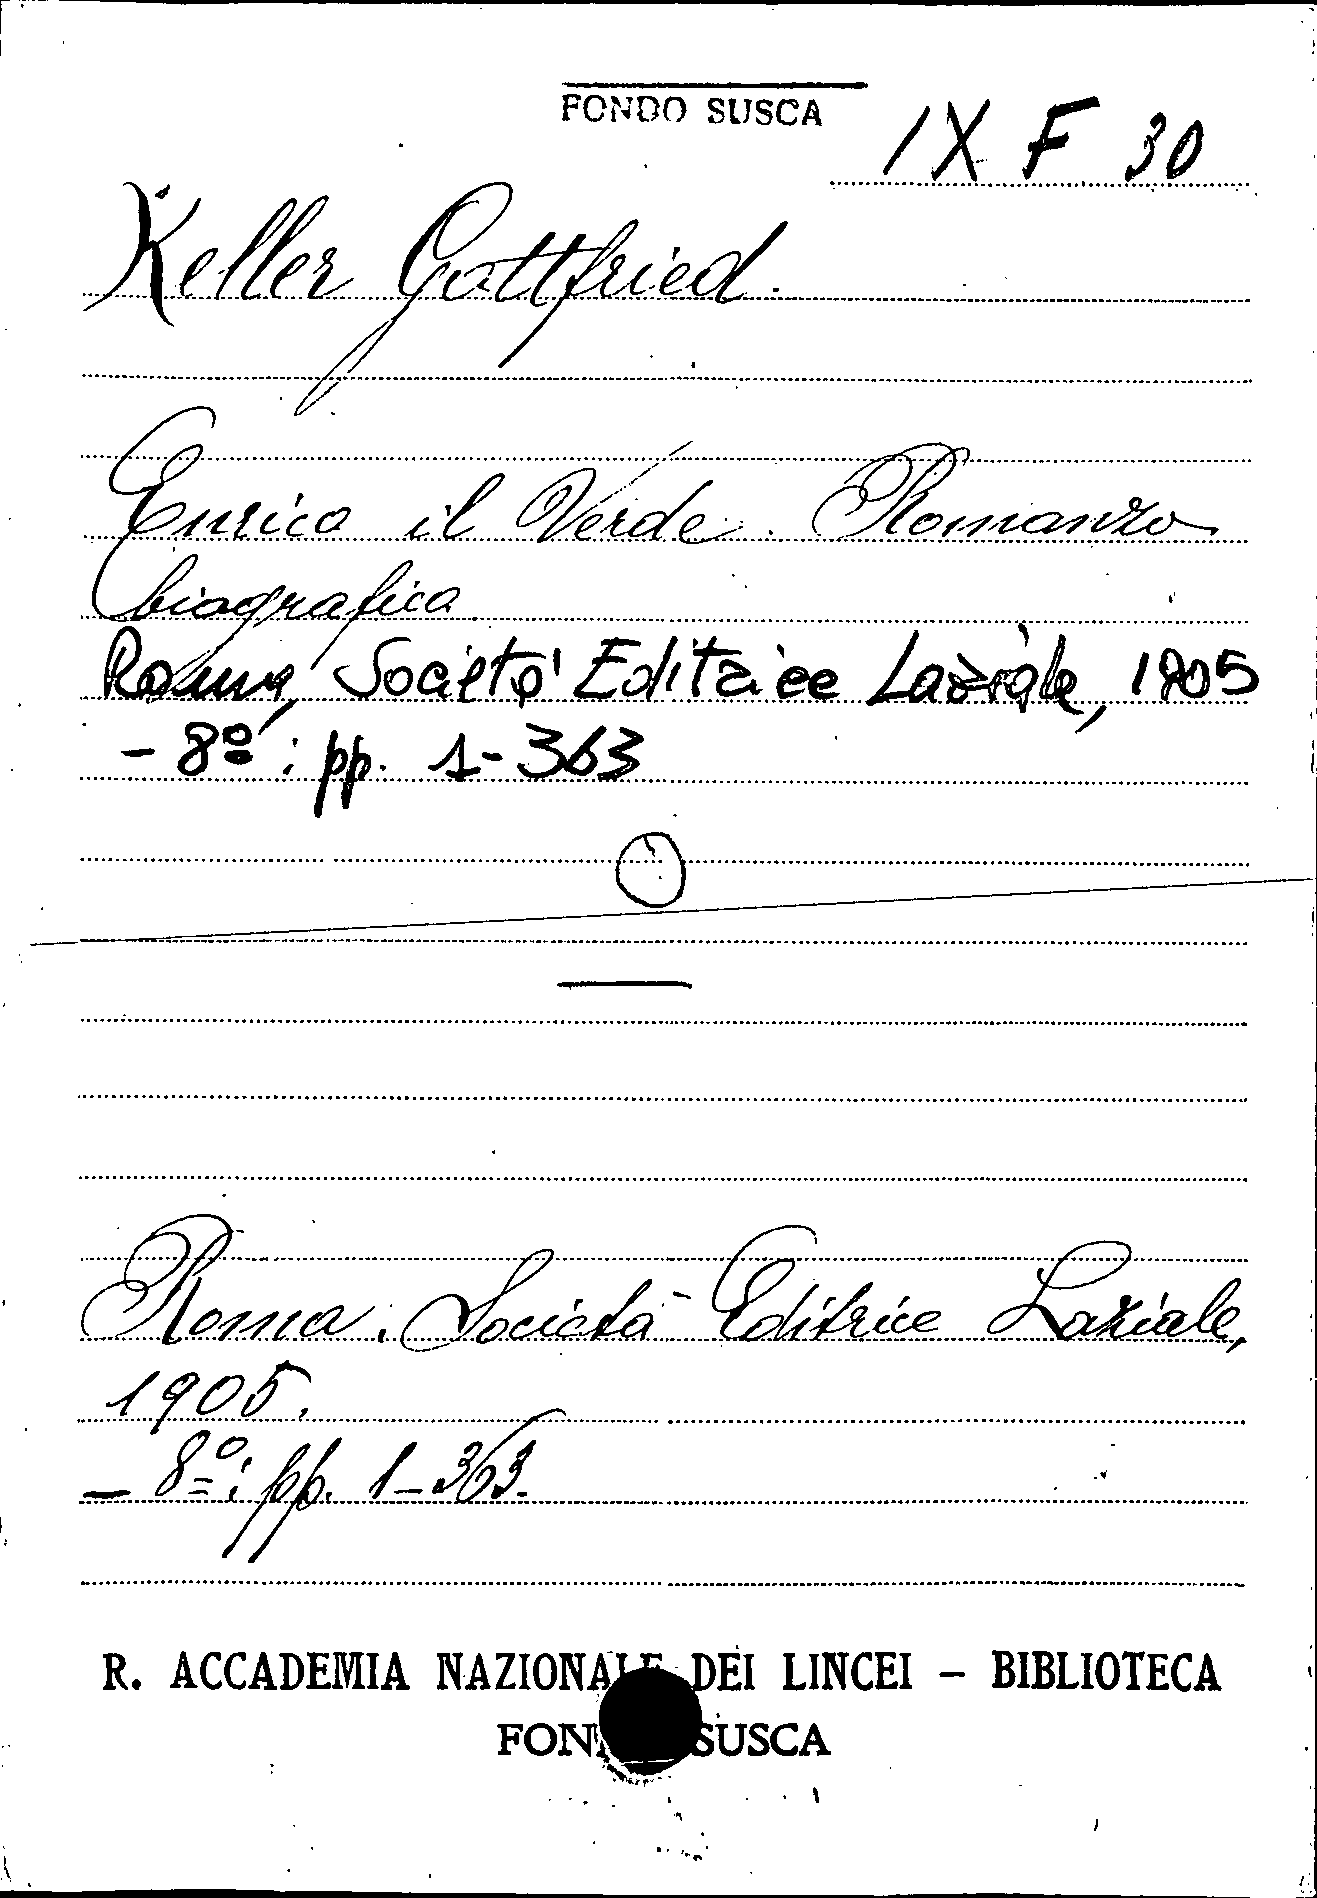 FONDO SUSCA
IX F 30
Keller Gottfried.
Enrico il Verde. Romanzo
biografico
Roma, Società Editrice Laziale, 1905
- 8º : pp. 1-363
Roma. Società Editrice Laziale,
1905.
- 8º : pp. 1-363.
R. ACCADEMIA NAZIONALE DEI LINCEI - BIBLIOTECA
FONDO SUSCA